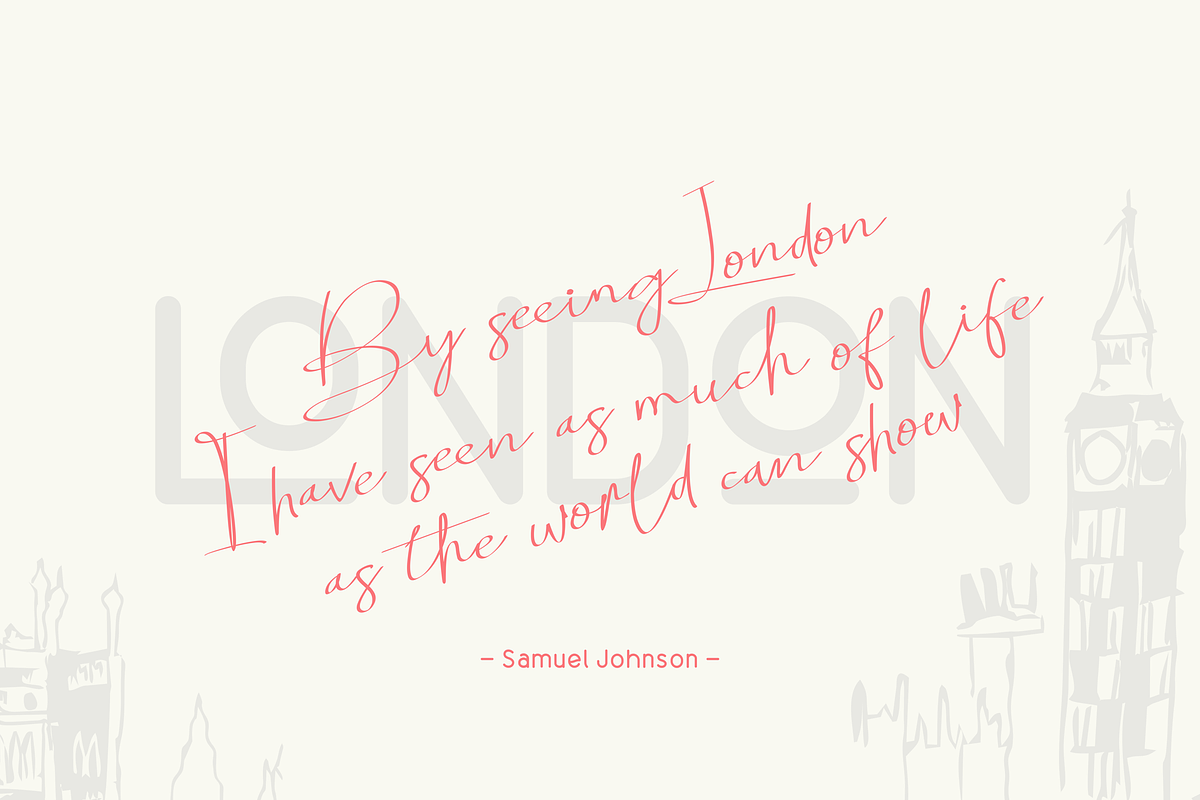 LONDON
By seeing London
I have seen as much of life
as the world can show
– Samuel Johnson –